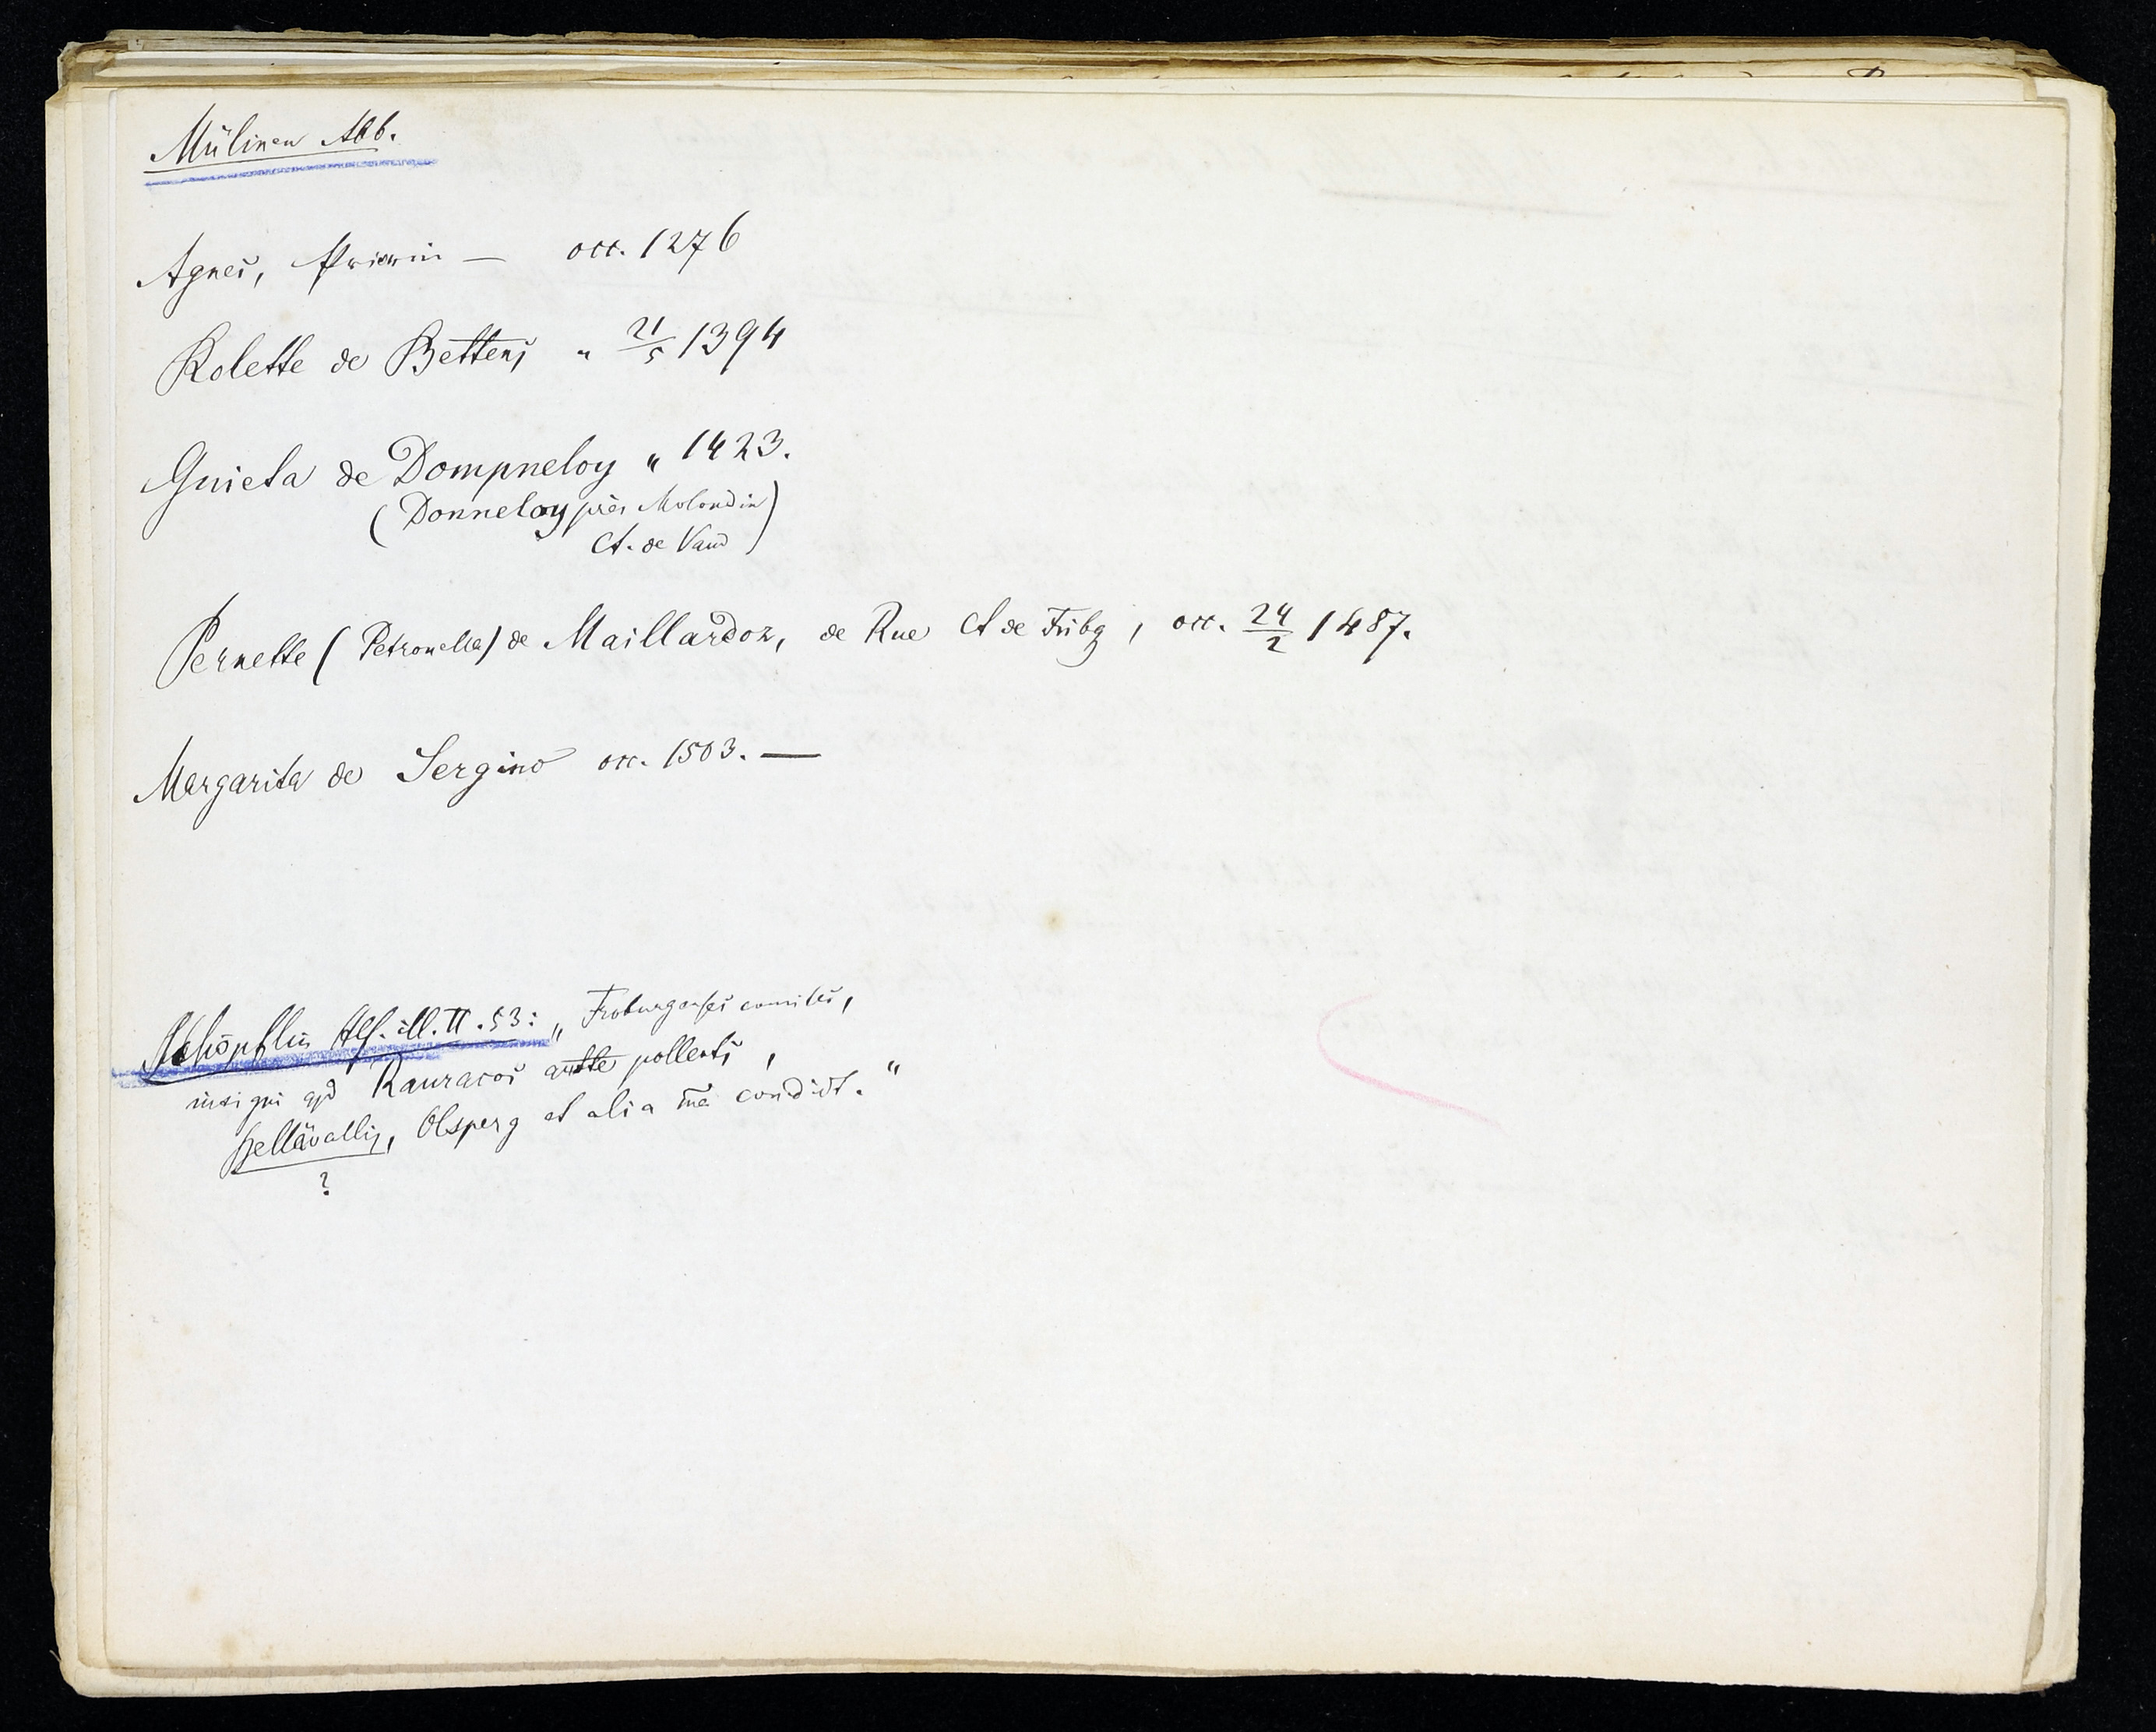 Mülinen Abb.
Agnes, Priorin — occ. 1276
Kolette de Bettens " 21/5 1394
Guieta de Dompneloy " 1423.
(Donneloy près Molondin)
Ct. de Vaud)
Pernette (Petronella) de Maillardoz, de Rue Ct de Fribg, occ. 24/2 1487.
Margarita de Sergino occ. 1503. —
Schöpflin Als. ill. II. 53: „Froburgenses comites,
apd Rauracos pollents,
Bellävallis, Olsperg et alia condidt.“
?